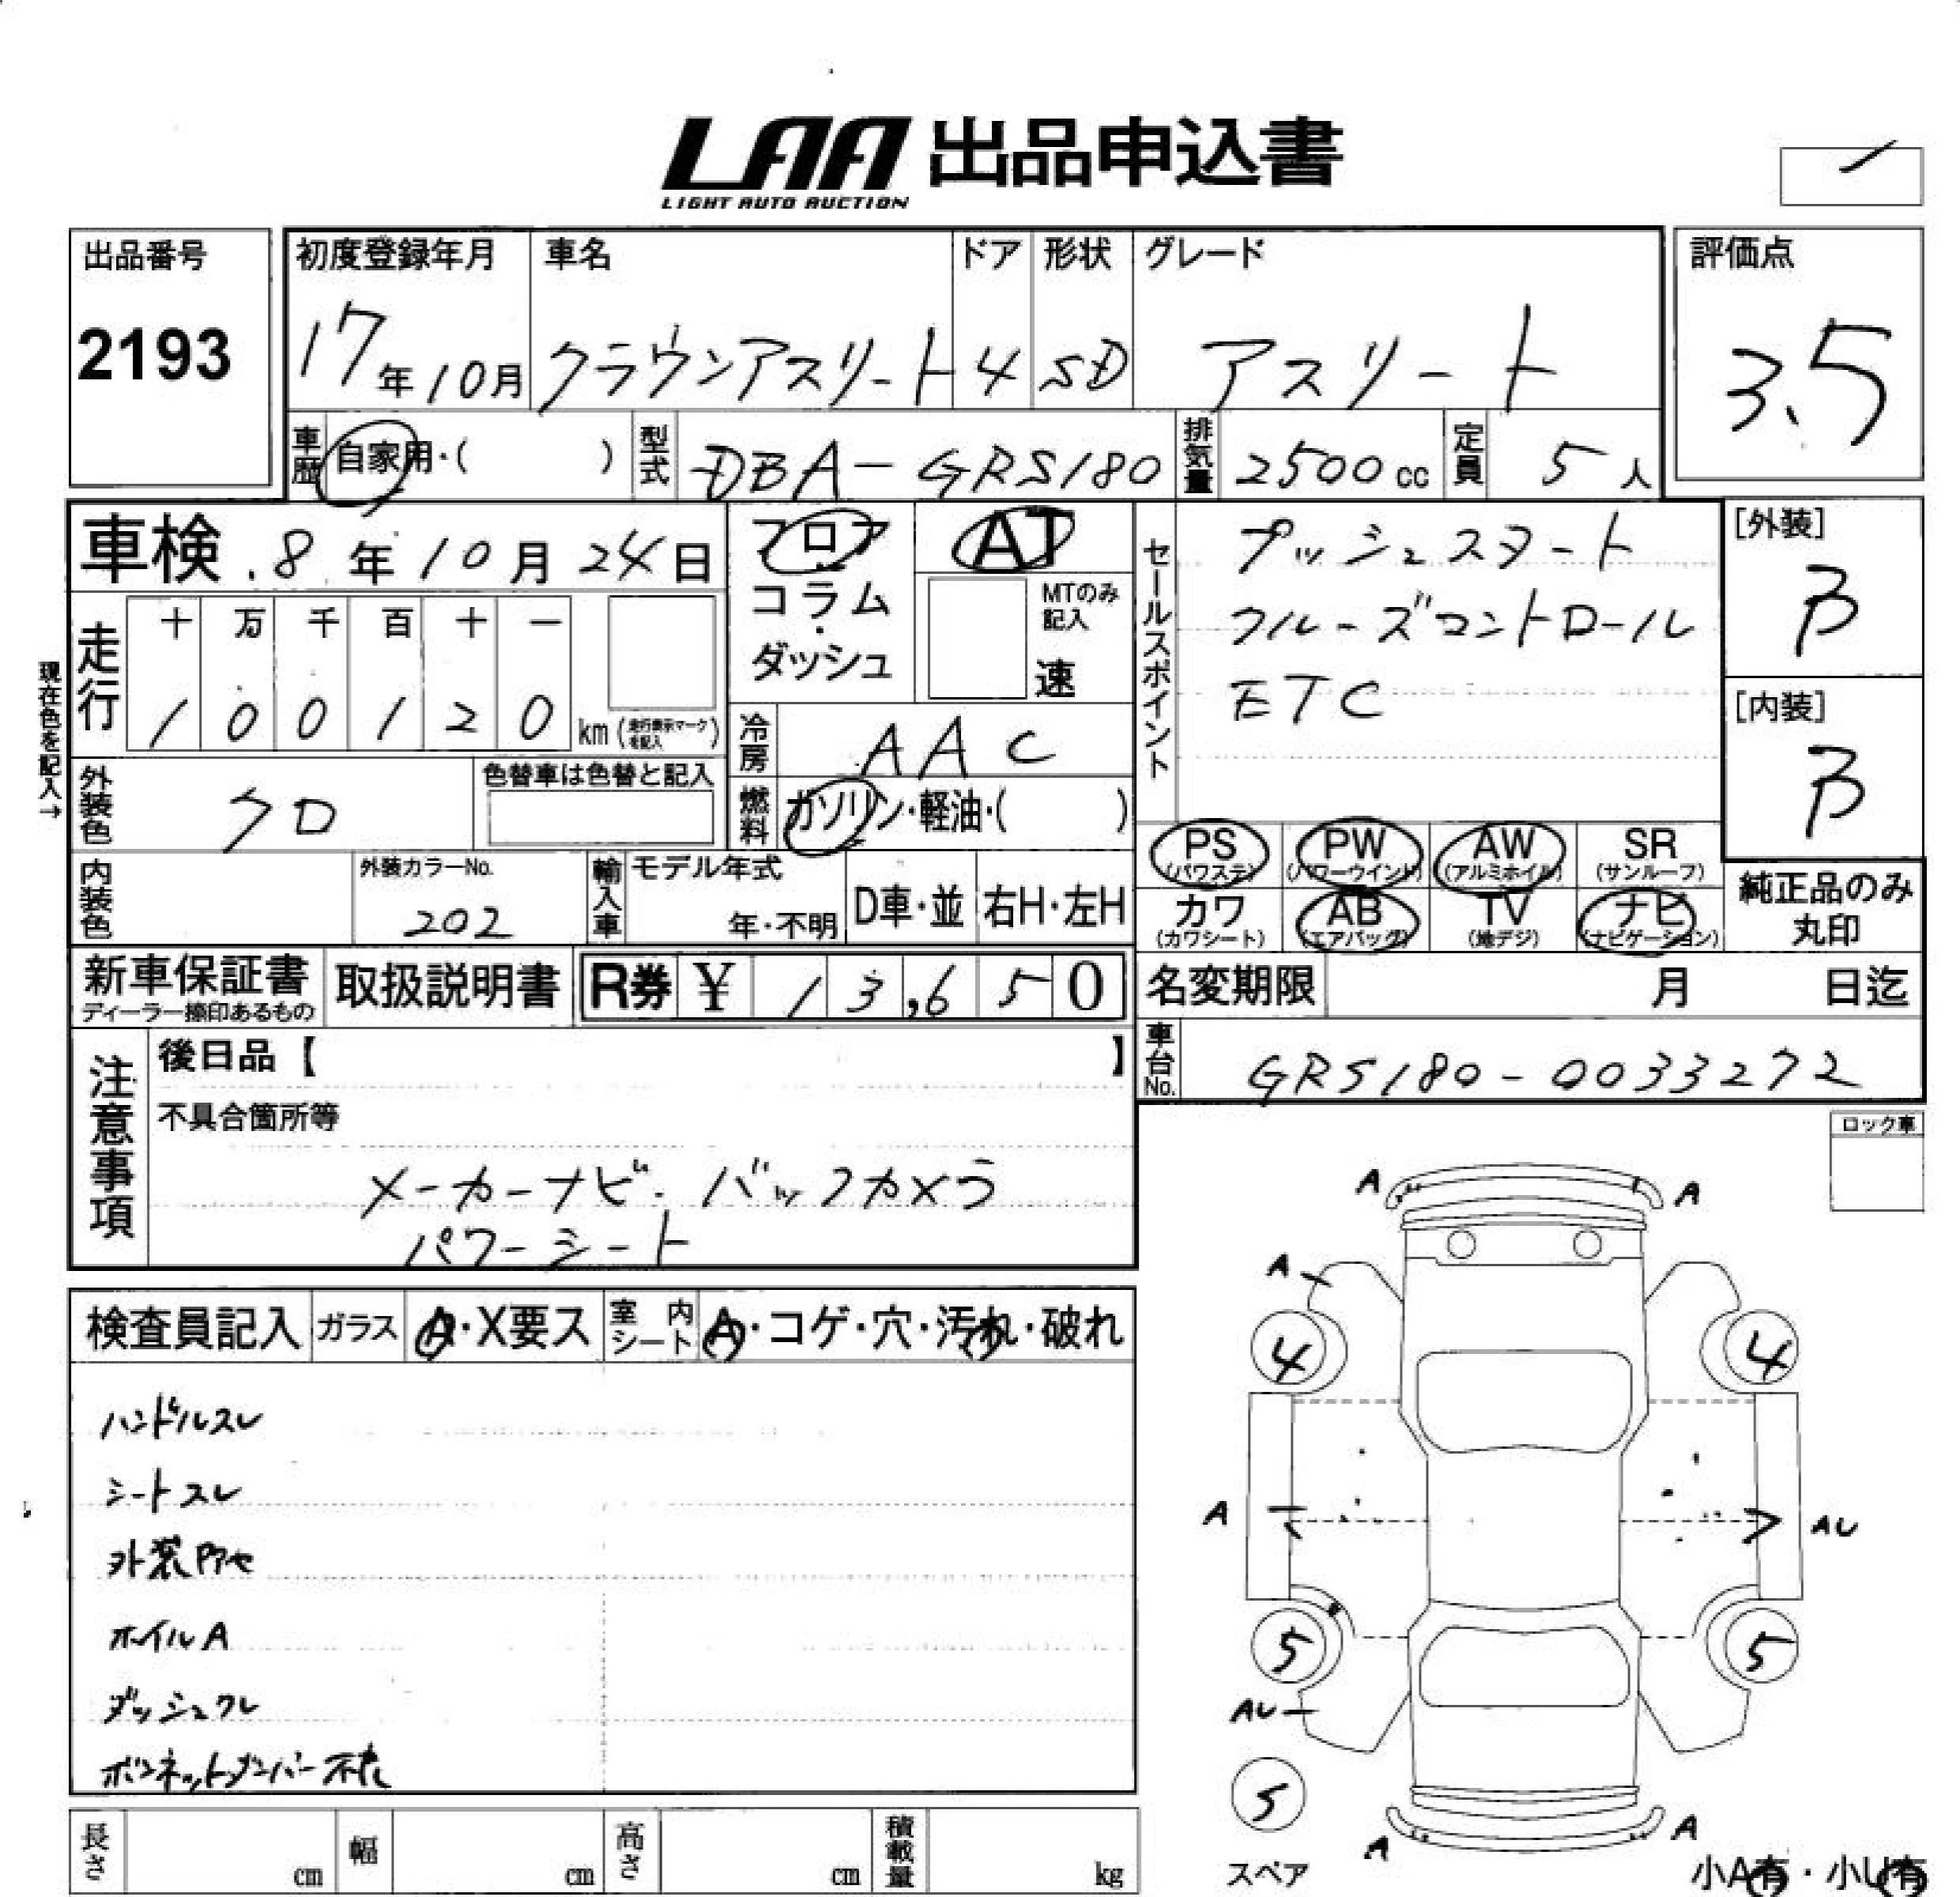 LAA 出品申込書
LIGHT AUTO AUCTION
出品番号
2193
初度登録年月
17年10月
車名
クラウンアスリート
ドア
4
形状
SD
グレード
アスリート
評価点
3.5
車歴
自家用・( )
型式
DBA-GRS180
排気量
2500cc
定員
5人
車検 8年10月24日
フロア
コラム
・
ダッシュ
AT
MTのみ
記入
速
セールスポイント
プッシュスタート
クルーズコントロール
ETC
[外装]
B
[内装]
B
現在色を記入→
走行
十 万 千 百 十 一
1 0 0 1 2 0
km(走行表示マークを記入)
冷房
AAC
燃料
ガソリン・軽油・( )
外装色
クロ
色替車は色替と記入
内装色
外装カラーNo.
202
輸入車
モデル年式
年・不明
D車・並
右H・左H
PS
(パワステ)
PW
(パワーウインド)
AW
(アルミホイル)
SR
(サンルーフ)
カワ
(カワシート)
AB
(エアバッグ)
TV
(地デジ)
ナビ
(ナビゲーション)
純正品のみ
丸印
新車保証書
ディーラー捺印あるもの
取扱説明書
R券 ¥ 13,650
名変期限 月 日迄
車台No.
GRS180-0033272
注意事項
後日品【 】
不具合箇所等
メーカーナビ. バックカメラ
パワーシート
ロック車
検査員記入
ガラス
A・X要ス
室内
シート
A・コゲ・穴・汚れ・破れ
ハンドルスレ
シートスレ
ホイルA
ボンネットダンパー不良
A
A
A
4
4
A
AU
5
5
AU
5
スペア
A
A
小A有・小U有
長さ cm
幅 cm
高さ cm
積載量 kg